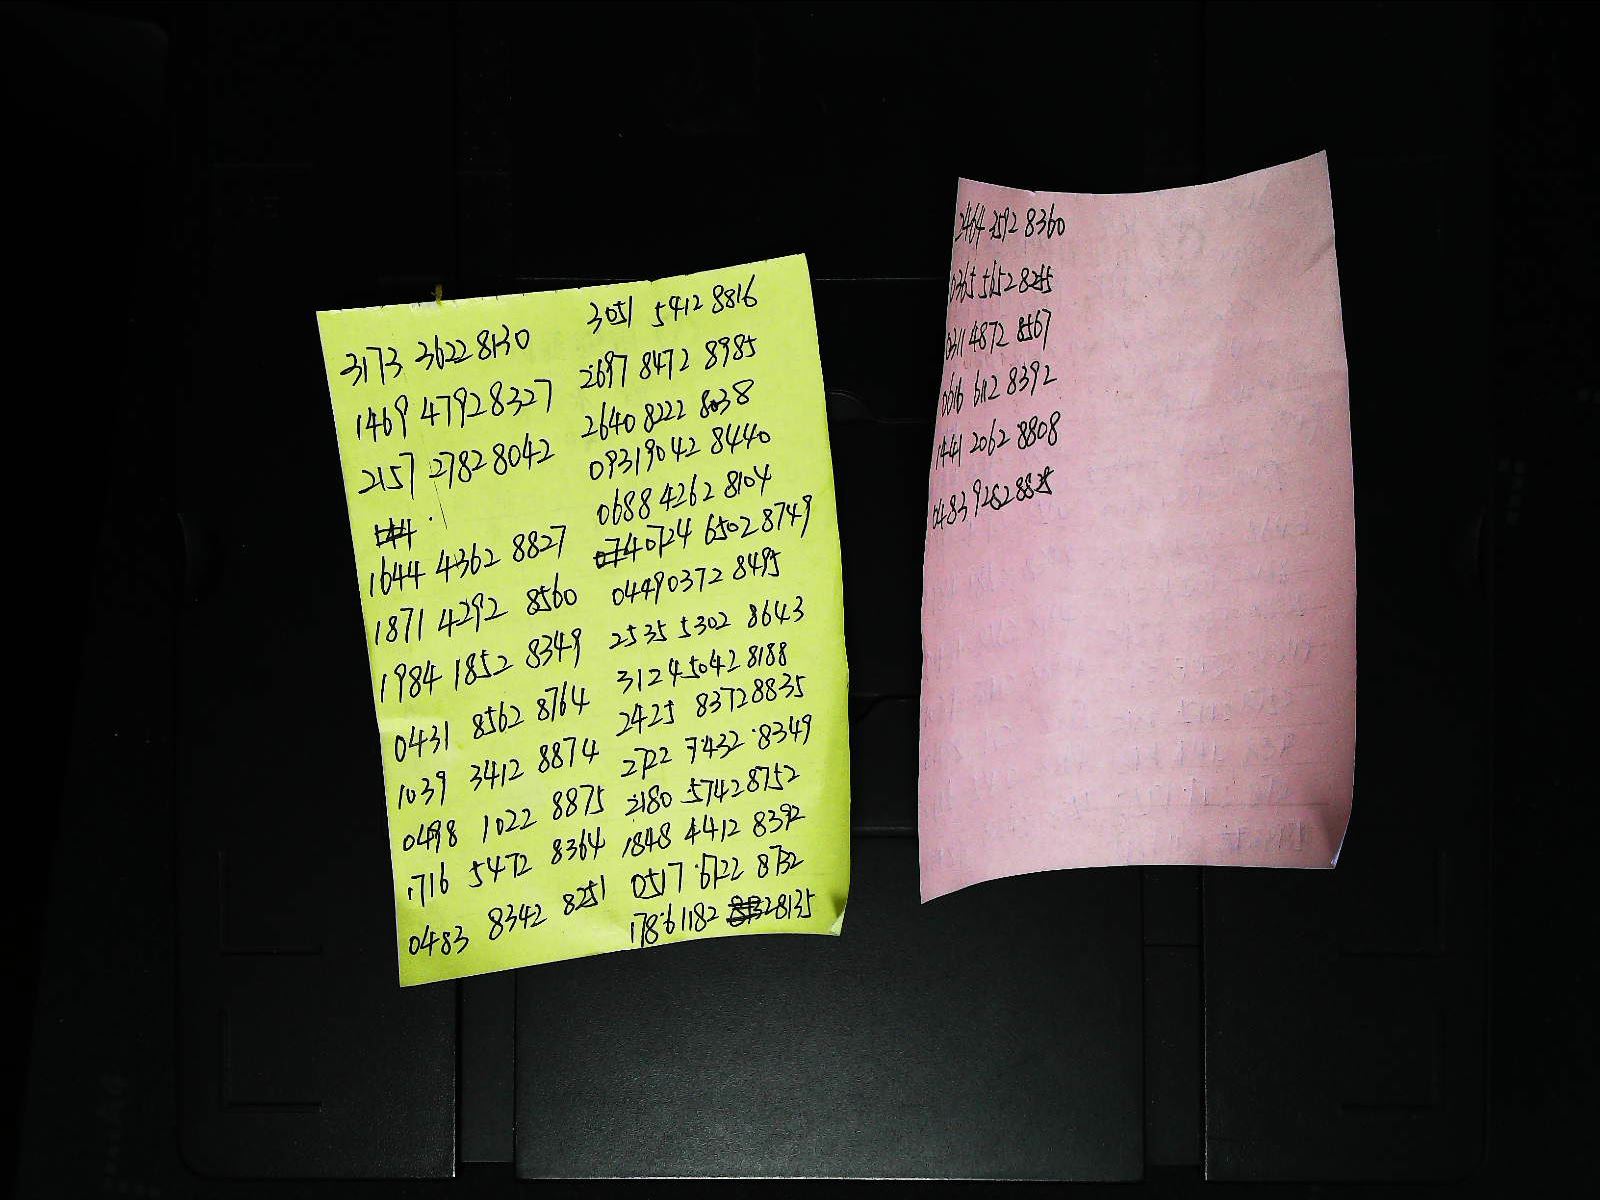 3173 3622 8130
1469 4792 8327
2157 2782 8042
1644 4362 8827
1871 4292 8560
1984 1852 8349
0431 8562 8764
1039 3412 8874
0498 1022 8875
1716 5472 8364
0483 8342 8251
3051 5412 8816
2697 8472 8985
2640 8222 8038
0931 9042 8440
0688 4262 8104
0724 6502 8749
0449 0372 8495
2535 5302 8643
3124 5042 8188
2425 8372 8835
2722 7432 8349
2180 5742 8752
1848 4412 8392
0517 6722 8732
1786 1182 8135
2464 2592 8360
0365 5652 8245
0311 4872 8567
0616 6112 8392
1441 2062 8808
0483 9262 8825